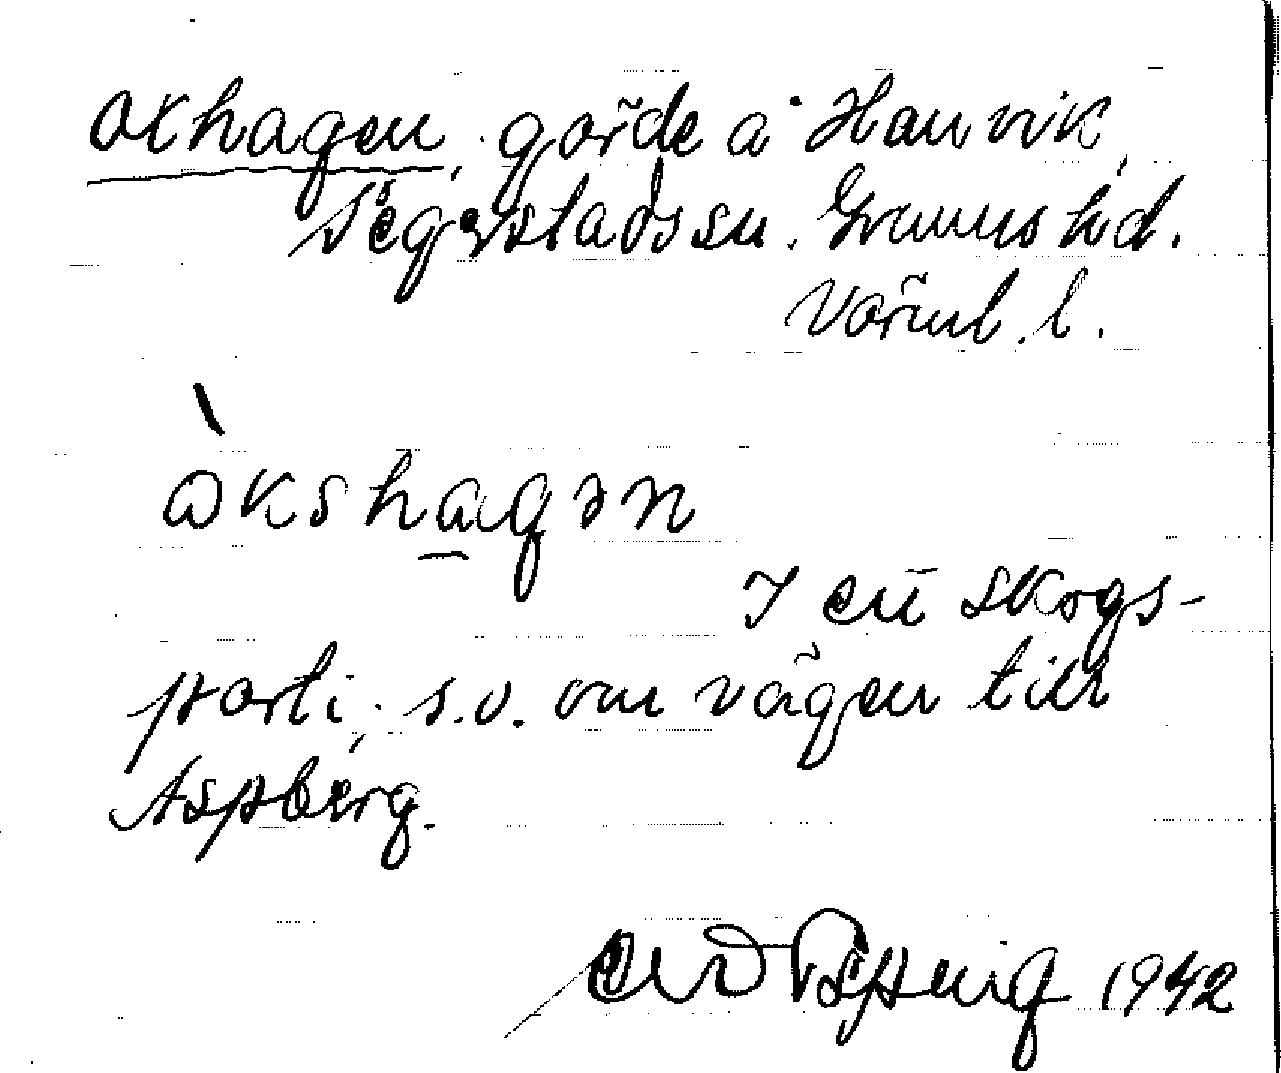 Oxhagen, gärde å Hanvik,
Segerstads sn. Grums hd.
Värml. l.
òkshagən
I ett skogs-
parti, s.v. om vägen till
Aspberg.
1942